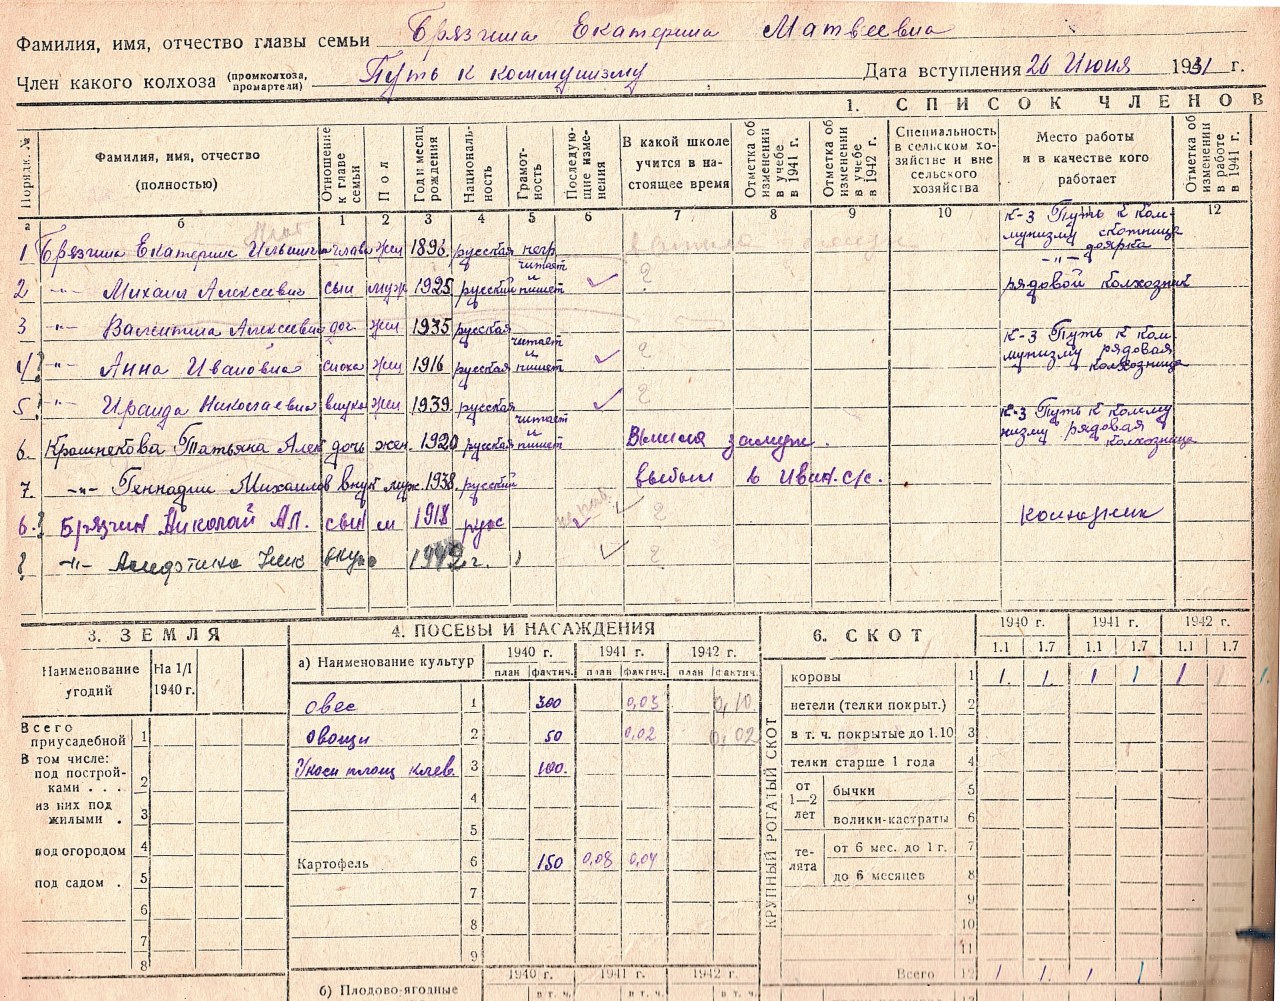 Фамилия, имя, отчество главы семьи Брязгина Екатерина Матвеевна
Член какого колхоза (промколхоза, промартели) Путь к коммунизму Дата вступления 26 Июня 1931 г.
1. СПИСОК ЧЛЕНОВ
Порядк. № Фамилия, имя, отчество (полностью) Отношение к главе семьи Пол Год и месяц рождения Националь-ность Грамот-ность Последую-щие изме-нения В какой школе учится в на-стоящее время Отметка об изменении в учебе в 1941 г. Отметка об изменении в учебе в 1942 г. Специальность в сельском хо-зяйстве и вне сельского хозяйства Место работы и в качестве кого работает Отметка об изменении в работе в 1941 г.
а б 1 2 3 4 5 6 7 8 9 10 11 12
1 Брязгина Екатерина глава жен 1896 русская негр. к-з Путь к ком-мунизму скотница -"- доярка
2 -"- Михаил Алексеевич сын муж 1925 русский читает и пишет рядовой колхозник
3 -"- Валентина Алексеевна доч жен 1935 русская
4 -"- Анна Ивановна сноха жен 1916 русская читает и пишет к-з Путь к ком-мунизму рядовая колхозница
5 -"- Ираида Николаевна внука жен 1939 русская
6. Татьяна Алек дочь жен. 1920 русская читает и пишет Вышла замуж. к-з Путь к комму-низму рядовая колхозница
7. -"- Геннадий Михайлов внук муж. 1938 русский выбыл в Иван. с/с.
6. Брязгин Николай Ал. сын м 1918 русс
8 -"- Ник внука 1942 г.
3. ЗЕМЛЯ
Наименование угодий На 1/I 1940 г.
Всего приусадебной 1
В том числе:
под построй-ками . . . 2
из них под жилыми . 3
под огородом 4
под садом . 5
6
7
8
4. ПОСЕВЫ И НАСАЖДЕНИЯ
а) Наименование культур 1940 г. 1941 г. 1942 г.
план фактич. план фактич. план фактич.
овес 1 300 0,03 0,10
овощи 2 50 0,02 0,02
площ клев. 3 100.
4
5
Картофель 6 150 0,08 0,04
7
8
9
б) Плодово-ягодные 1940 г. 1941 г. 1942 г.
в т. ч. в т. ч. в т. ч.
6. СКОТ
1940 г. 1941 г. 1942 г.
1.1 1.7 1.1 1.7 1.1 1.7
КРУПНЫЙ РОГАТЫЙ СКОТ
коровы 1 1. 1. 1 1 1 1 1.
нетели (телки покрыт.) 2
в т. ч. покрытые до 1.10 3
телки старше 1 года 4
от 1—2 лет бычки 5
волики-кастраты 6
те-лята от 6 мес. до 1 г. 7
до 6 месяцев 8
9
10
11
Всего 12 1 1. 1 1